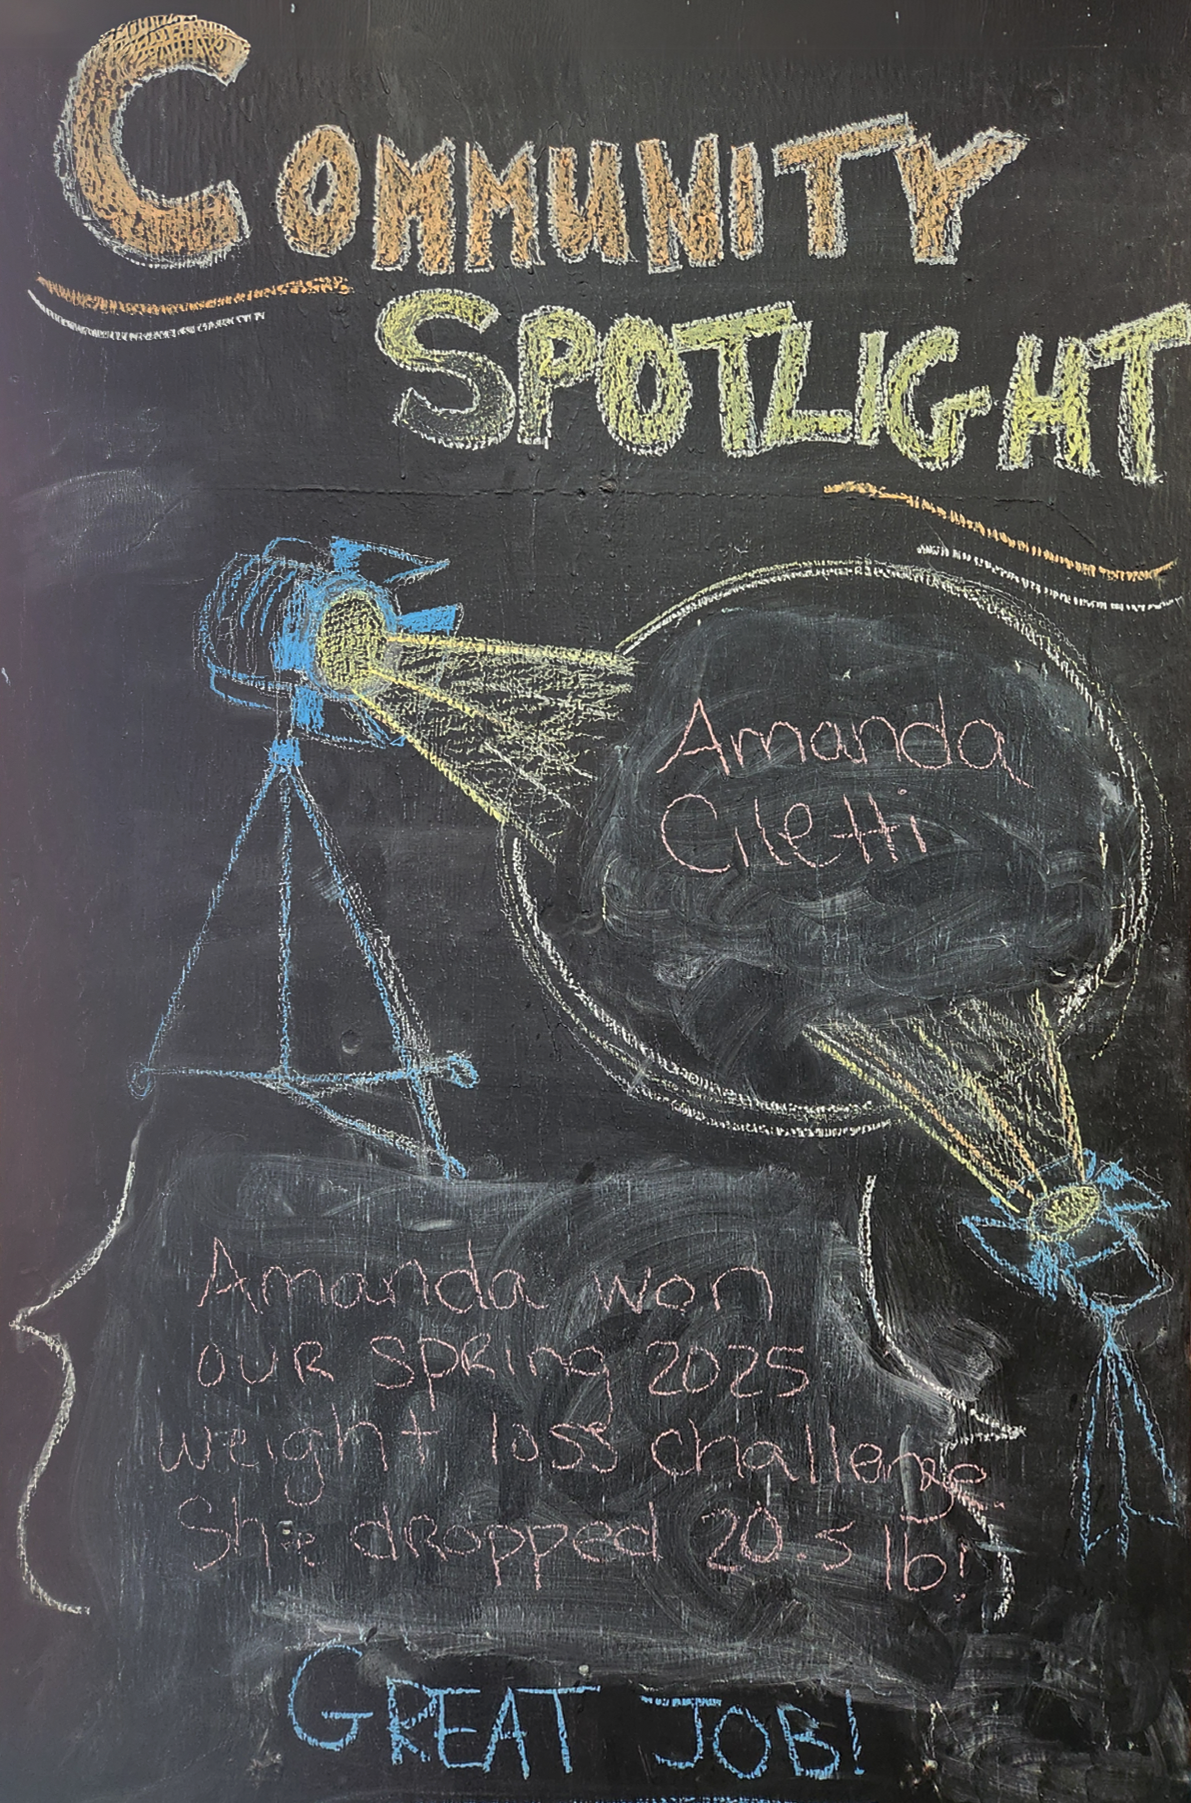 COMMUNITY
SPOTLIGHT
Amanda
Ciletti
Amanda won
our spring 2025
weight loss challenge.
She dropped 20.5 lb!
GREAT JOB!